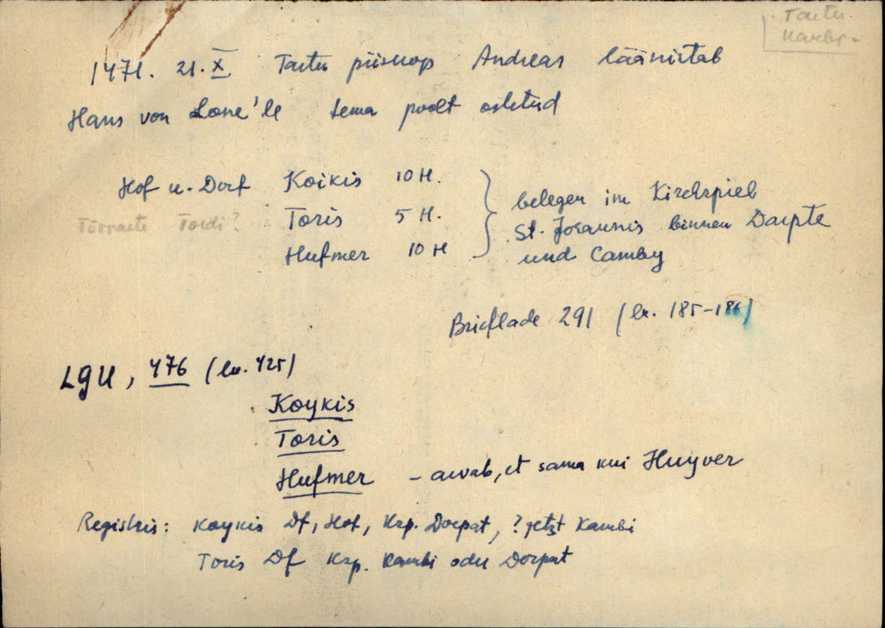 Tartu
Kambj-
1471. 21. X Tartu piiskop Andreas läänistab
Hans von Lone'le tema poolt ostetud
Hof u. Dorf Koikis 10 H.
Tõrvaste Tordi? Toris 5 H.
Hufmer 10 H
belegen im Kirchspiel
St. Johannis binnen Darpte
und Camby
Brieflade 291 (lk. 185-186)
LGU, 476 (lk. 425)
Koykis
Toris
Hufmer - arvab, et sama kui Huyver
Registris: Koykis Df, Hof, Ksp. Dorpat, ? jetzt Kambi
Toris Df Ksp. Kambi oder Dorpat